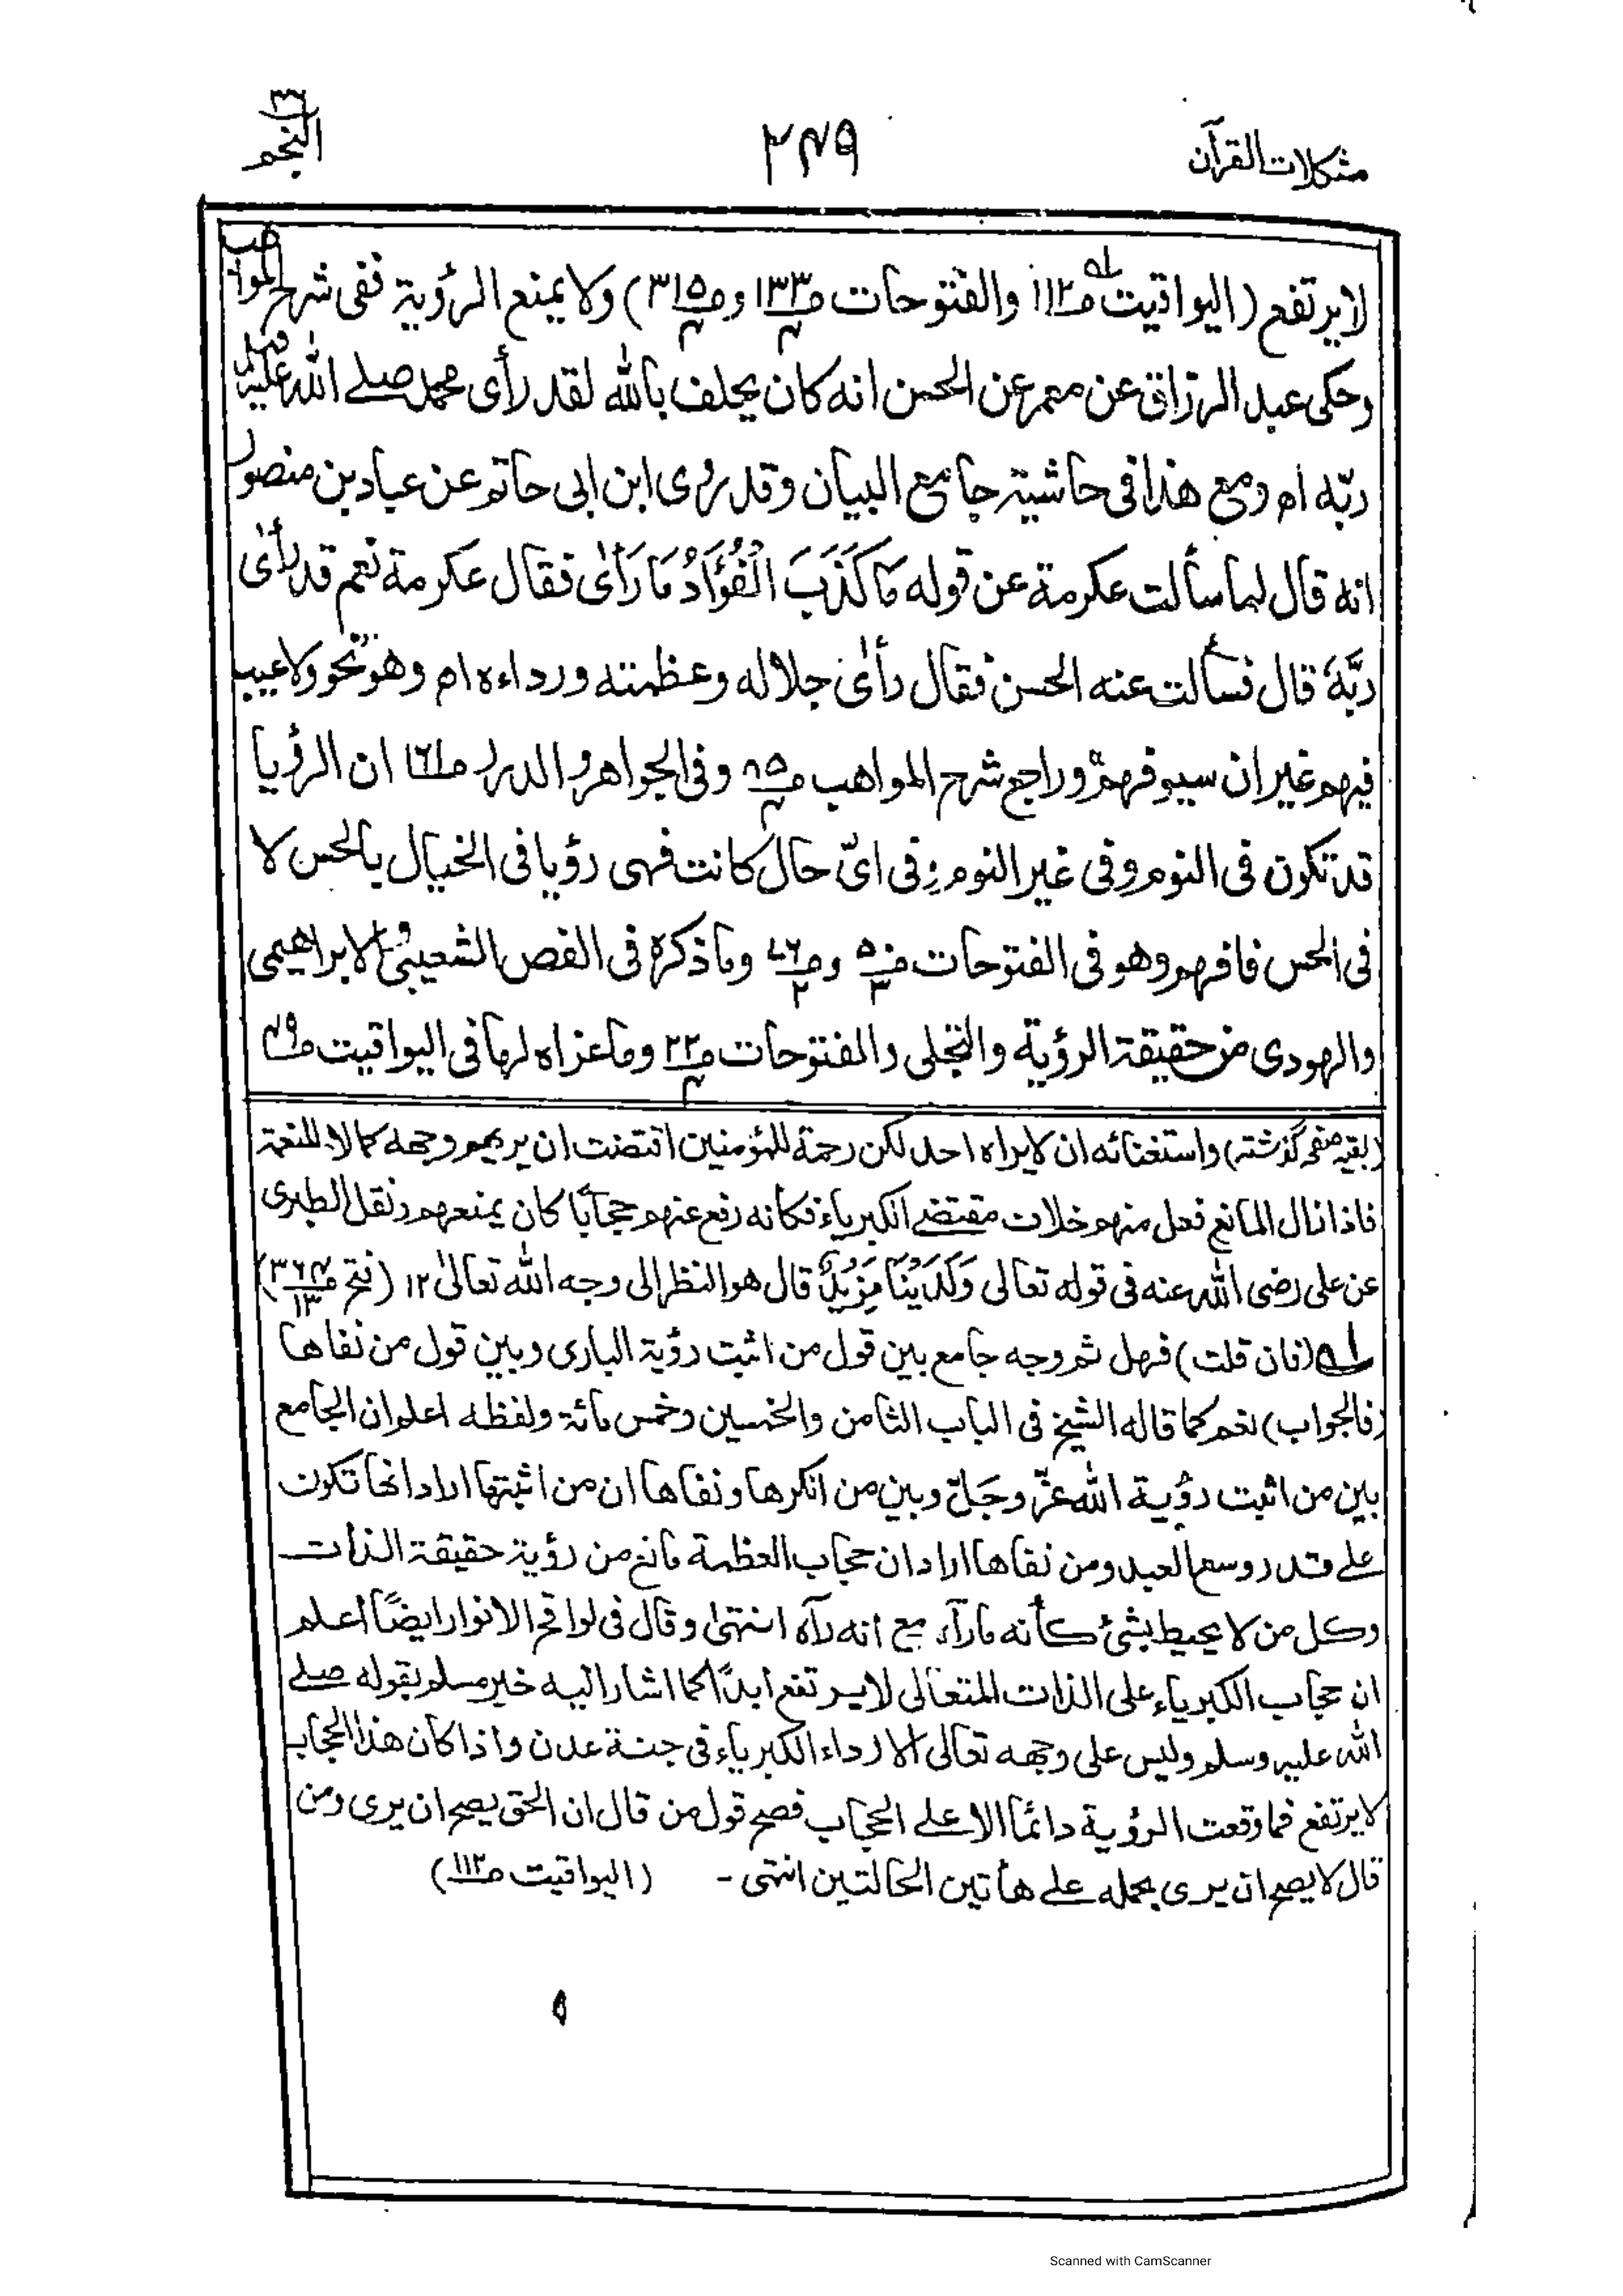 مشكلات القرآن
۲۴۹
النجم
لا يرتفع (اليواقيت ص۱۱۲ والفتوحات ص۱۳۳/۴ و ص۳۱۵/۴) ولا يمنع الرؤية ففى شرح المواهب
وحكى عبد الرزاق عن معمر عن الحسن انه كان يحلف بالله لقد رأى محمد صلے الله عليه وسلم
ربّه اھ ومع هذا فى حاشية جامع البيان وقد روى ابن ابى حاتم عن عباد بن منصور
انه قال لما سألت عكرمة عن قوله مَا كَذَبَ الْفُؤَادُ مَا رَأَىٰ فقال عكرمة نعم قد رأى
ربَّهٗ قال فسألت عنه الحسن فقال رأىٰ جلاله وعظمته ورداءه اھ وهو نحو ولا عيب
فيهم غير ان سيوفهم وراجع شرح المواهب وفى الجواهر والدرر ص۱۶۱ ان الرؤيا
قد تكون فى النوم وفى غير النوم وفى اىّ حال كانت فهى رؤيا فى الخيال بالحس لا
فى الحس فافهم وهو فى الفتوحات ص۵/۳ و ص۴۶/۲ وما ذكره فى الفص الشعيبى والابراهيمى
والهودى من حقيقة الرؤية والتجلى والفتوحات ص۲۲/۴ وما عزاه لها فى اليواقيت ص۴۹
(بقيه صفحه گذشته) واستغنائه ان لا يراه احد لكن رحمة للمؤمنين اقتضت ان يريهم وجهه كمالا للنعمة
فاذا زال المانع فعل منهم خلاف مقتضے الكبرياء فكأنه رفع عنهم حجابًا كان يمنعهم ونقل الطبرى
عن على رضى الله عنه فى قوله تعالى وَلَدَيْنَا مَزِيْدٌ قال هو النظر الى وجه الله تعالىٰ ۱۲ (فتح ص۳۶۴/۱۳)
۱ه (فان قلت) فهل ثم وجه جامع بين قول من اثبت رؤية البارى وبين قول من نفاها
(فالجواب) نعم كما قاله الشيخ فى الباب الثامن والخمسين وخمس مائة ولفظه اعلم ان الجامع
بين من اثبت رؤية الله عزّ وجَلّ وبين من انكرها ونفاها ان من اثبتها اراد انها تكون
علے قدر وسع العبد ومن نفاها اراد ان حجاب العظمة مانع من رؤية حقيقة الذات
وكل من لا يحيط بشئ كأنه ما رآه مع انه رآه انتهىٰ وقال فى لواقح الانوار ايضًا اعلم
ان حجاب الكبرياء على الذات المتعالى لا يرتفع ابدًا كما اشار اليه خبر مسلم بقوله صلے
الله عليه وسلم وليس على وجهه تعالى الا رداء الكبرياء فى جنة عدن واذا كان هذا الحجاب
لا يرتفع فما وقعت الرؤية دائمًا الا علے الحجاب فصح قول من قال ان الحق يصح ان يرى ومن
قال لا يصح ان يرى بحمله علے هاتين الحالتين انتهى - (اليواقيت ص۱۱۲)
Scanned with CamScanner